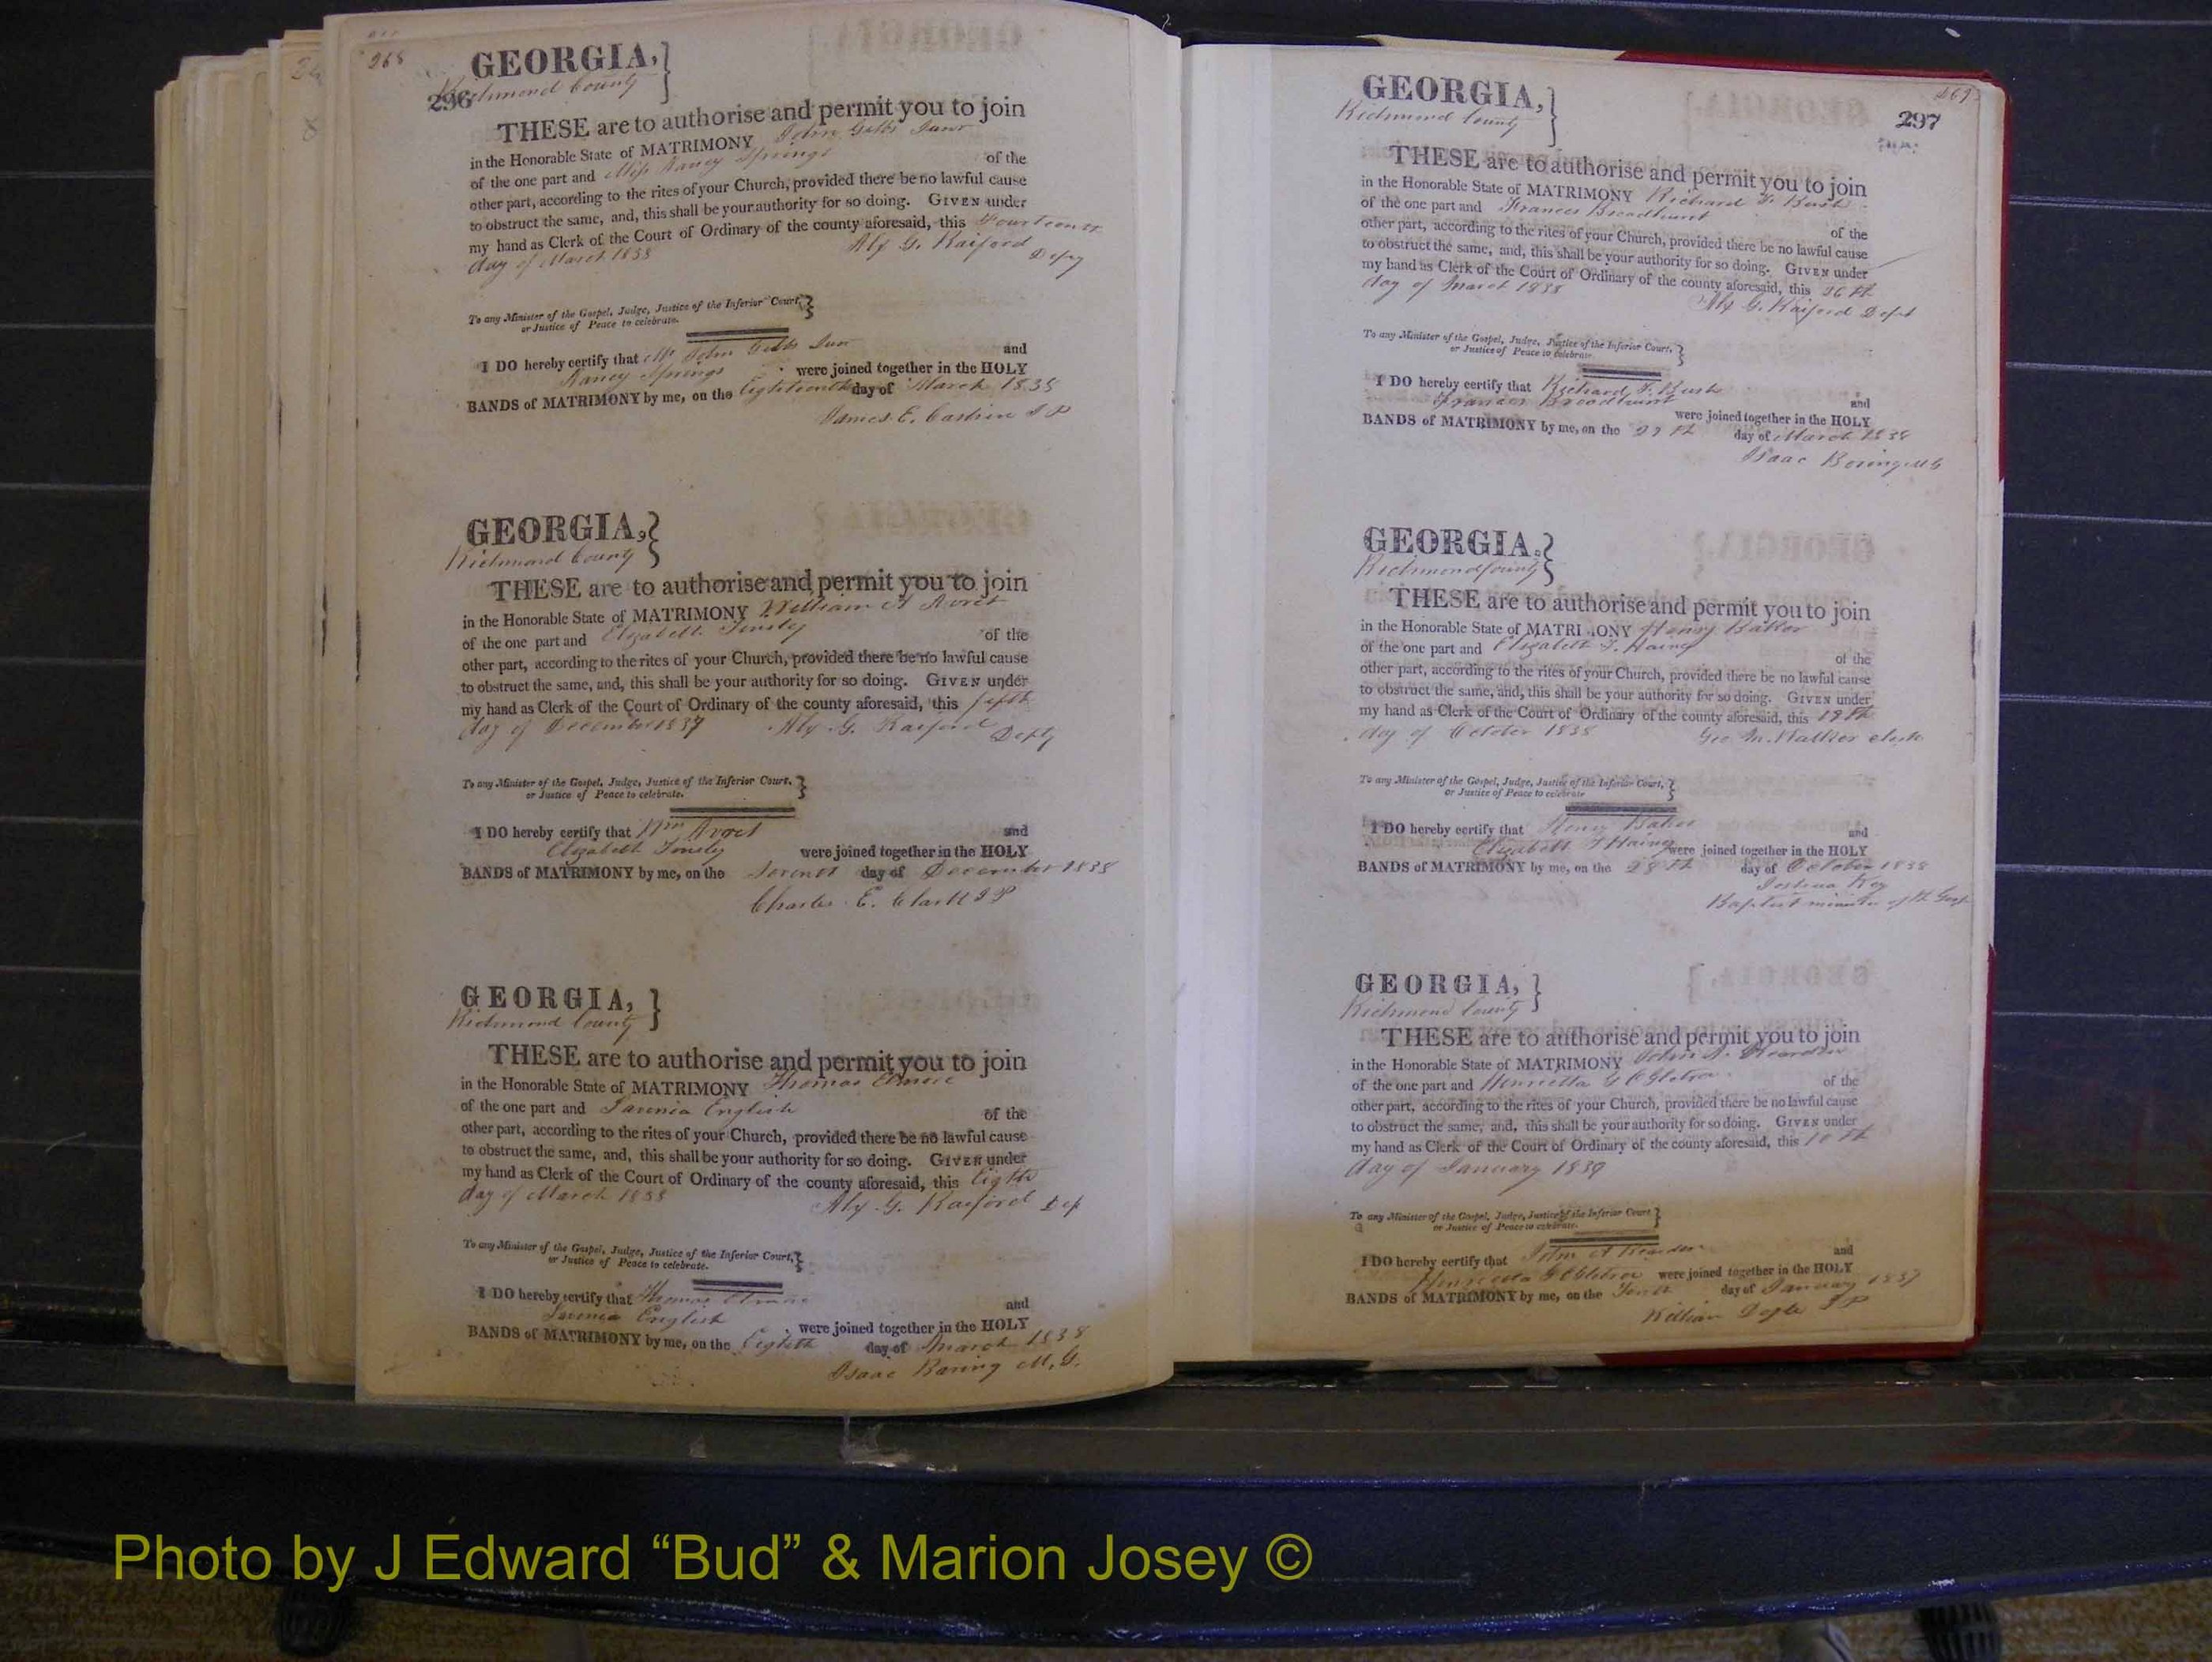 268
296
GEORGIA,
Richmond County
THESE are to authorise and permit you to join
in the Honorable State of MATRIMONY John Gibbs Junr
of the one part and Miss Nancy Springs of the
other part, according to the rites of your Church, provided there be no lawful cause
to obstruct the same, and, this shall be your authority for so doing. GIVEN under
my hand as Clerk of the Court of Ordinary of the county aforesaid, this Fourteenth
day of March 1838 Alx G. Raiford Depy
To any Minister of the Gospel, Judge, Justice of the Inferior Court,
or Justice of Peace to celebrate.
I DO hereby certify that Mr John Gibbs Junr and
Nancy Springs were joined together in the HOLY
BANDS of MATRIMONY by me, on the Eighteenth day of March 1838
James E. J P
GEORGIA,
Richmond County
THESE are to authorise and permit you to join
in the Honorable State of MATRIMONY William A Avret
of the one part and Elizabeth Tinsley of the
other part, according to the rites of your Church, provided there be no lawful cause
to obstruct the same, and, this shall be your authority for so doing. GIVEN under
my hand as Clerk of the Court of Ordinary of the county aforesaid, this fifth
day of December 1837 Alx G. Raiford Depty
To any Minister of the Gospel, Judge, Justice of the Inferior Court,
or Justice of Peace to celebrate.
I DO hereby certify that Wm Avret and
Elizabeth Tinsley were joined together in the HOLY
BANDS of MATRIMONY by me, on the Seventh day of December 1838
Charles E. Clark J P
GEORGIA,
Richmond County
THESE are to authorise and permit you to join
in the Honorable State of MATRIMONY Thomas Elmore
of the one part and Lavinia English of the
other part, according to the rites of your Church, provided there be no lawful cause
to obstruct the same, and, this shall be your authority for so doing. GIVEN under
my hand as Clerk of the Court of Ordinary of the county aforesaid, this Eigth
day of March 1838 Alx G. Raiford Dep
To any Minister of the Gospel, Judge, Justice of the Inferior Court,
or Justice of Peace to celebrate.
I DO hereby certify that Thomas and
Lavinia English were joined together in the HOLY
BANDS of MATRIMONY by me, on the Eighth day of March 1838
Isaac Boring M. G.
269
297
GEORGIA,
Richmond County
THESE are to authorise and permit you to join
in the Honorable State of MATRIMONY Richard F. Bush
of the one part and Frances Broadhurst of the
other part, according to the rites of your Church, provided there be no lawful cause
to obstruct the same, and, this shall be your authority for so doing. GIVEN under
my hand as Clerk of the Court of Ordinary of the county aforesaid, this 26th
day of March 1838 Alx G. Raiford Dept
To any Minister of the Gospel, Judge, Justice of the Inferior Court,
or Justice of Peace to celebrate.
I DO hereby certify that Richard F. Bush
Frances Broadhurst and
were joined together in the HOLY
BANDS of MATRIMONY by me, on the 27th day of March 1838
Isaac Boring M G
GEORGIA,
Richmond County
THESE are to authorise and permit you to join
in the Honorable State of MATRIMONY Henry Baker
of the one part and Elizabeth T. Haines of the
other part, according to the rites of your Church, provided there be no lawful cause
to obstruct the same, and, this shall be your authority for so doing. GIVEN under
my hand as Clerk of the Court of Ordinary of the county aforesaid, this 19th
day of October 1838 Geo M. Walker clerk
To any Minister of the Gospel, Judge, Justice of the Inferior Court,
or Justice of Peace to celebrate
I DO hereby certify that Henry Baker and
Elizabeth T Haines were joined together in the HOLY
BANDS of MATRIMONY by me, on the 28th day of October 1838
Joshua Key
Baptist minister of the Gosp
GEORGIA,
Richmond County
THESE are to authorise and permit you to join
in the Honorable State of MATRIMONY John A. Rearden
of the one part and Henrietta G of the
other part, according to the rites of your Church, provided there be no lawful cause
to obstruct the same, and, this shall be your authority for so doing. GIVEN under
my hand as Clerk of the Court of Ordinary of the county aforesaid, this 10th
day of January 1839
To any Minister of the Gospel, Judge, Justice of the Inferior Court
or Justice of Peace to celebrate.
I DO hereby certify that John A Rearden and
Henrietta G were joined together in the HOLY
BANDS of MATRIMONY by me, on the Tenth day of January 1839
William Doyle J P
Photo by J Edward “Bud” & Marion Josey ©